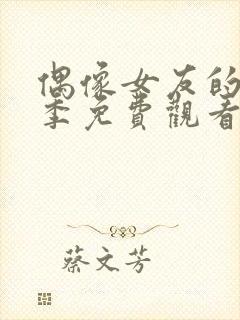 偶像女友的
季免費觀看
蔡文芳